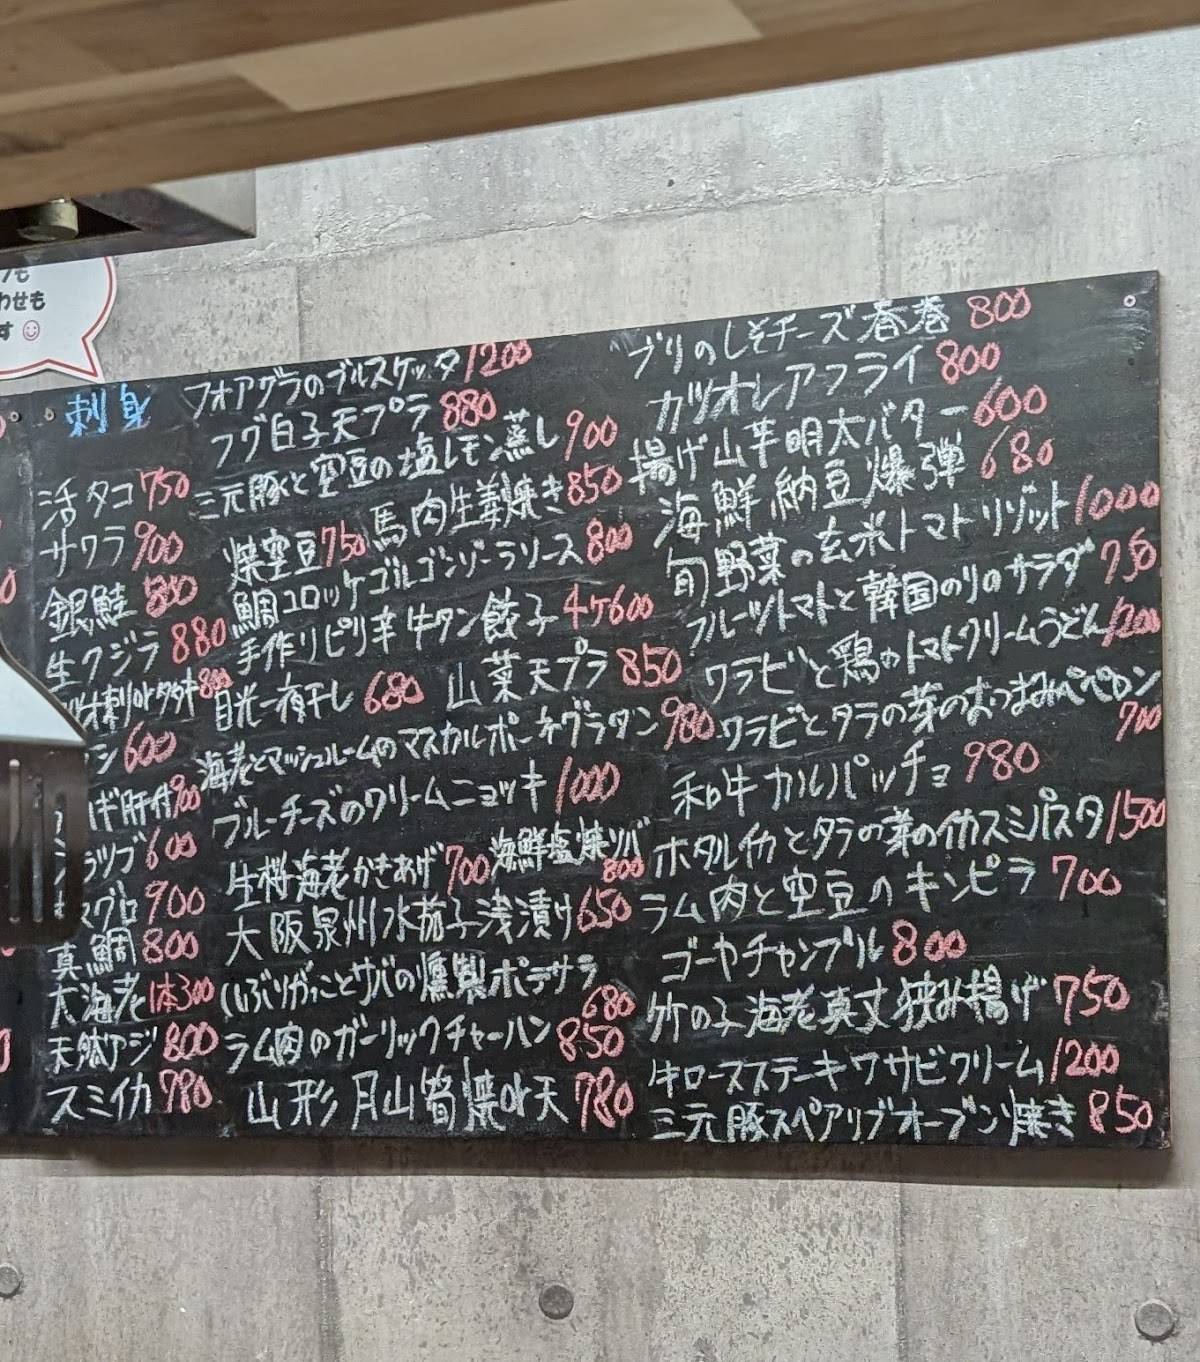 わせも
す
刺身
活タコ 750
サワラ 900
銀鮭 800
生クジラ 880
刺orタタキ 800
シ 600
ギ肝付 900
ラツブ 600
マグロ 900
真鯛 800
大海老 1本300
天然アジ 800
スミイカ 780
フォアグラのブルスケッタ 1200
フグ白子天プラ 880
三元豚と空豆の塩レモン蒸し 900
焼空豆 750 馬肉生姜焼き 850
鯛コロッケゴルゴンゾーラソース 800
手作りピリ辛牛タン餃子 4ケ600
目光一夜干し 680 山菜天プラ 850
海老とマッシュルームのマスカルポーネグラタン 980
ブルーチーズのクリームニョッキ 1000
生桜海老かきあげ 700 海鮮塩焼ソバ 800
大阪泉州水茄子浅漬け 650
いぶりがっことサバの燻製ポテサラ 680
ラム肉のガーリックチャーハン 850
山形月山筍焼or天 780
ブリのしそチーズ春巻 800
カツオレアフライ 800
揚げ山芋明太バター 600
海鮮納豆爆弾 680
旬野菜の玄米トマトリゾット 1000
フルーツトマトと韓国のりのサラダ 750
ワラビと鶏のトマトクリームうどん 1200
ワラビとタラの芽のおつまみペペロン 700
和牛カルパッチョ 980
ホタルイカとタラの芽のイカスミパスタ 1500
ラム肉と空豆のキンピラ 700
ゴーヤチャンプル 800
竹の子海老真丈挟み揚げ 750
牛ロースステーキワサビクリーム 1200
三元豚スペアリブオーブン焼き 850